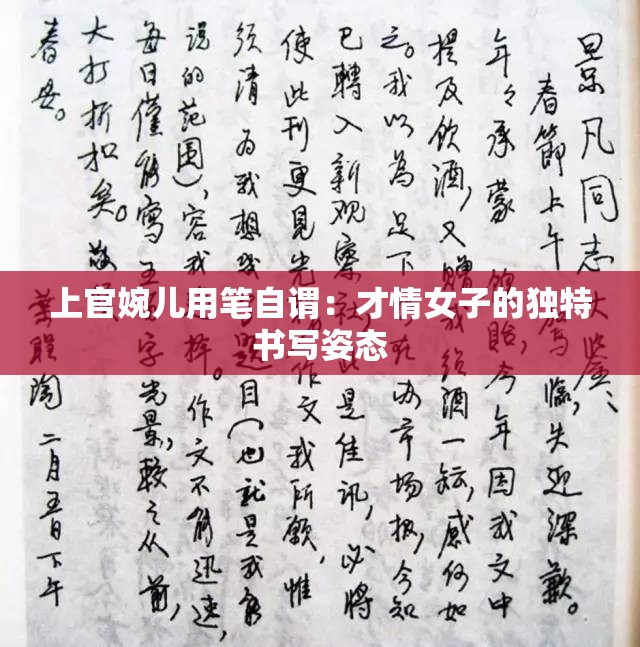 景凡同志大鉴：
春節上午臨，失迎深歉。
年々承蒙今年因我文中
提及飲酒，又贈我酒一坛，感何如
之。我以為足下办市场报，今知
已轉入新观察社此是佳讯，必將
使此刊更見光作文我所願，惟
须请为我想题目（也就是我能
说的范围），容我择。作文不能迅速，
每日僅能寫五字光景，較之从前，
大打折扣矣。敬
春安。
葉聖陶 二月五日下午
上官婉儿用笔自谓：才情女子的独特
书写姿态